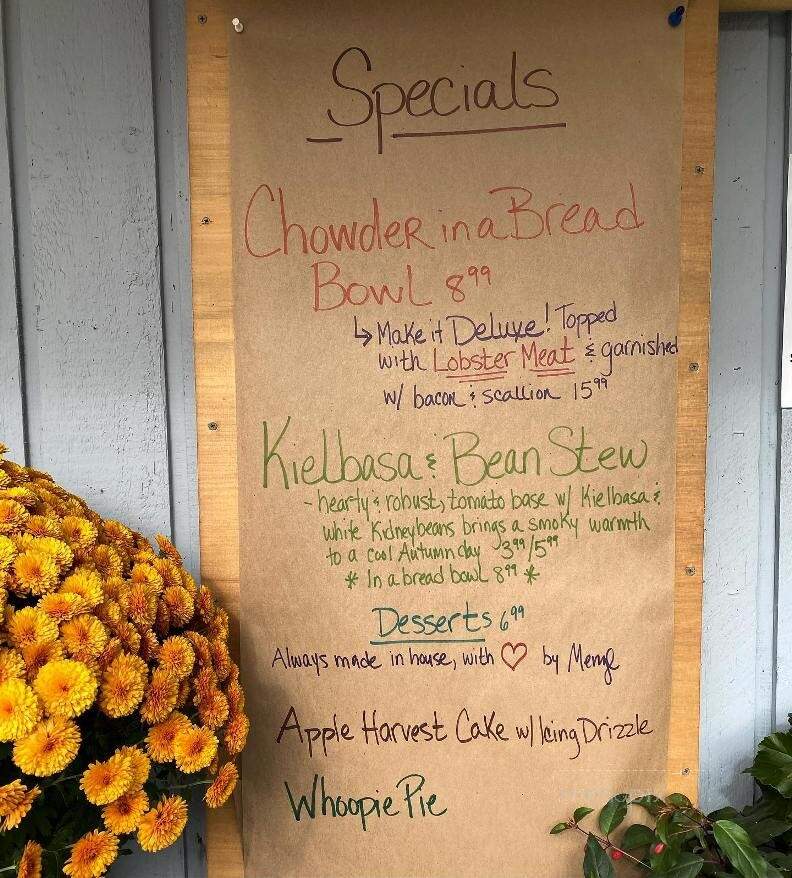 Specials
Chowder in a Bread
Bowl 8.99
↳ Make it Deluxe! Topped
with Lobster Meat & garnished
w/ bacon & scallion 15.99
Kielbasa & Bean Stew
- hearty & robust, tomato base w/ Kielbasa &
white Kidneybeans brings a smoky warmth
to a cool Autumn day 3.99/5.99
* In a bread bowl 8.99 *
Desserts 6.99
Always made in house, with ♡ by
Apple Harvest Cake w/ Icing Drizzle
Whoopie Pie